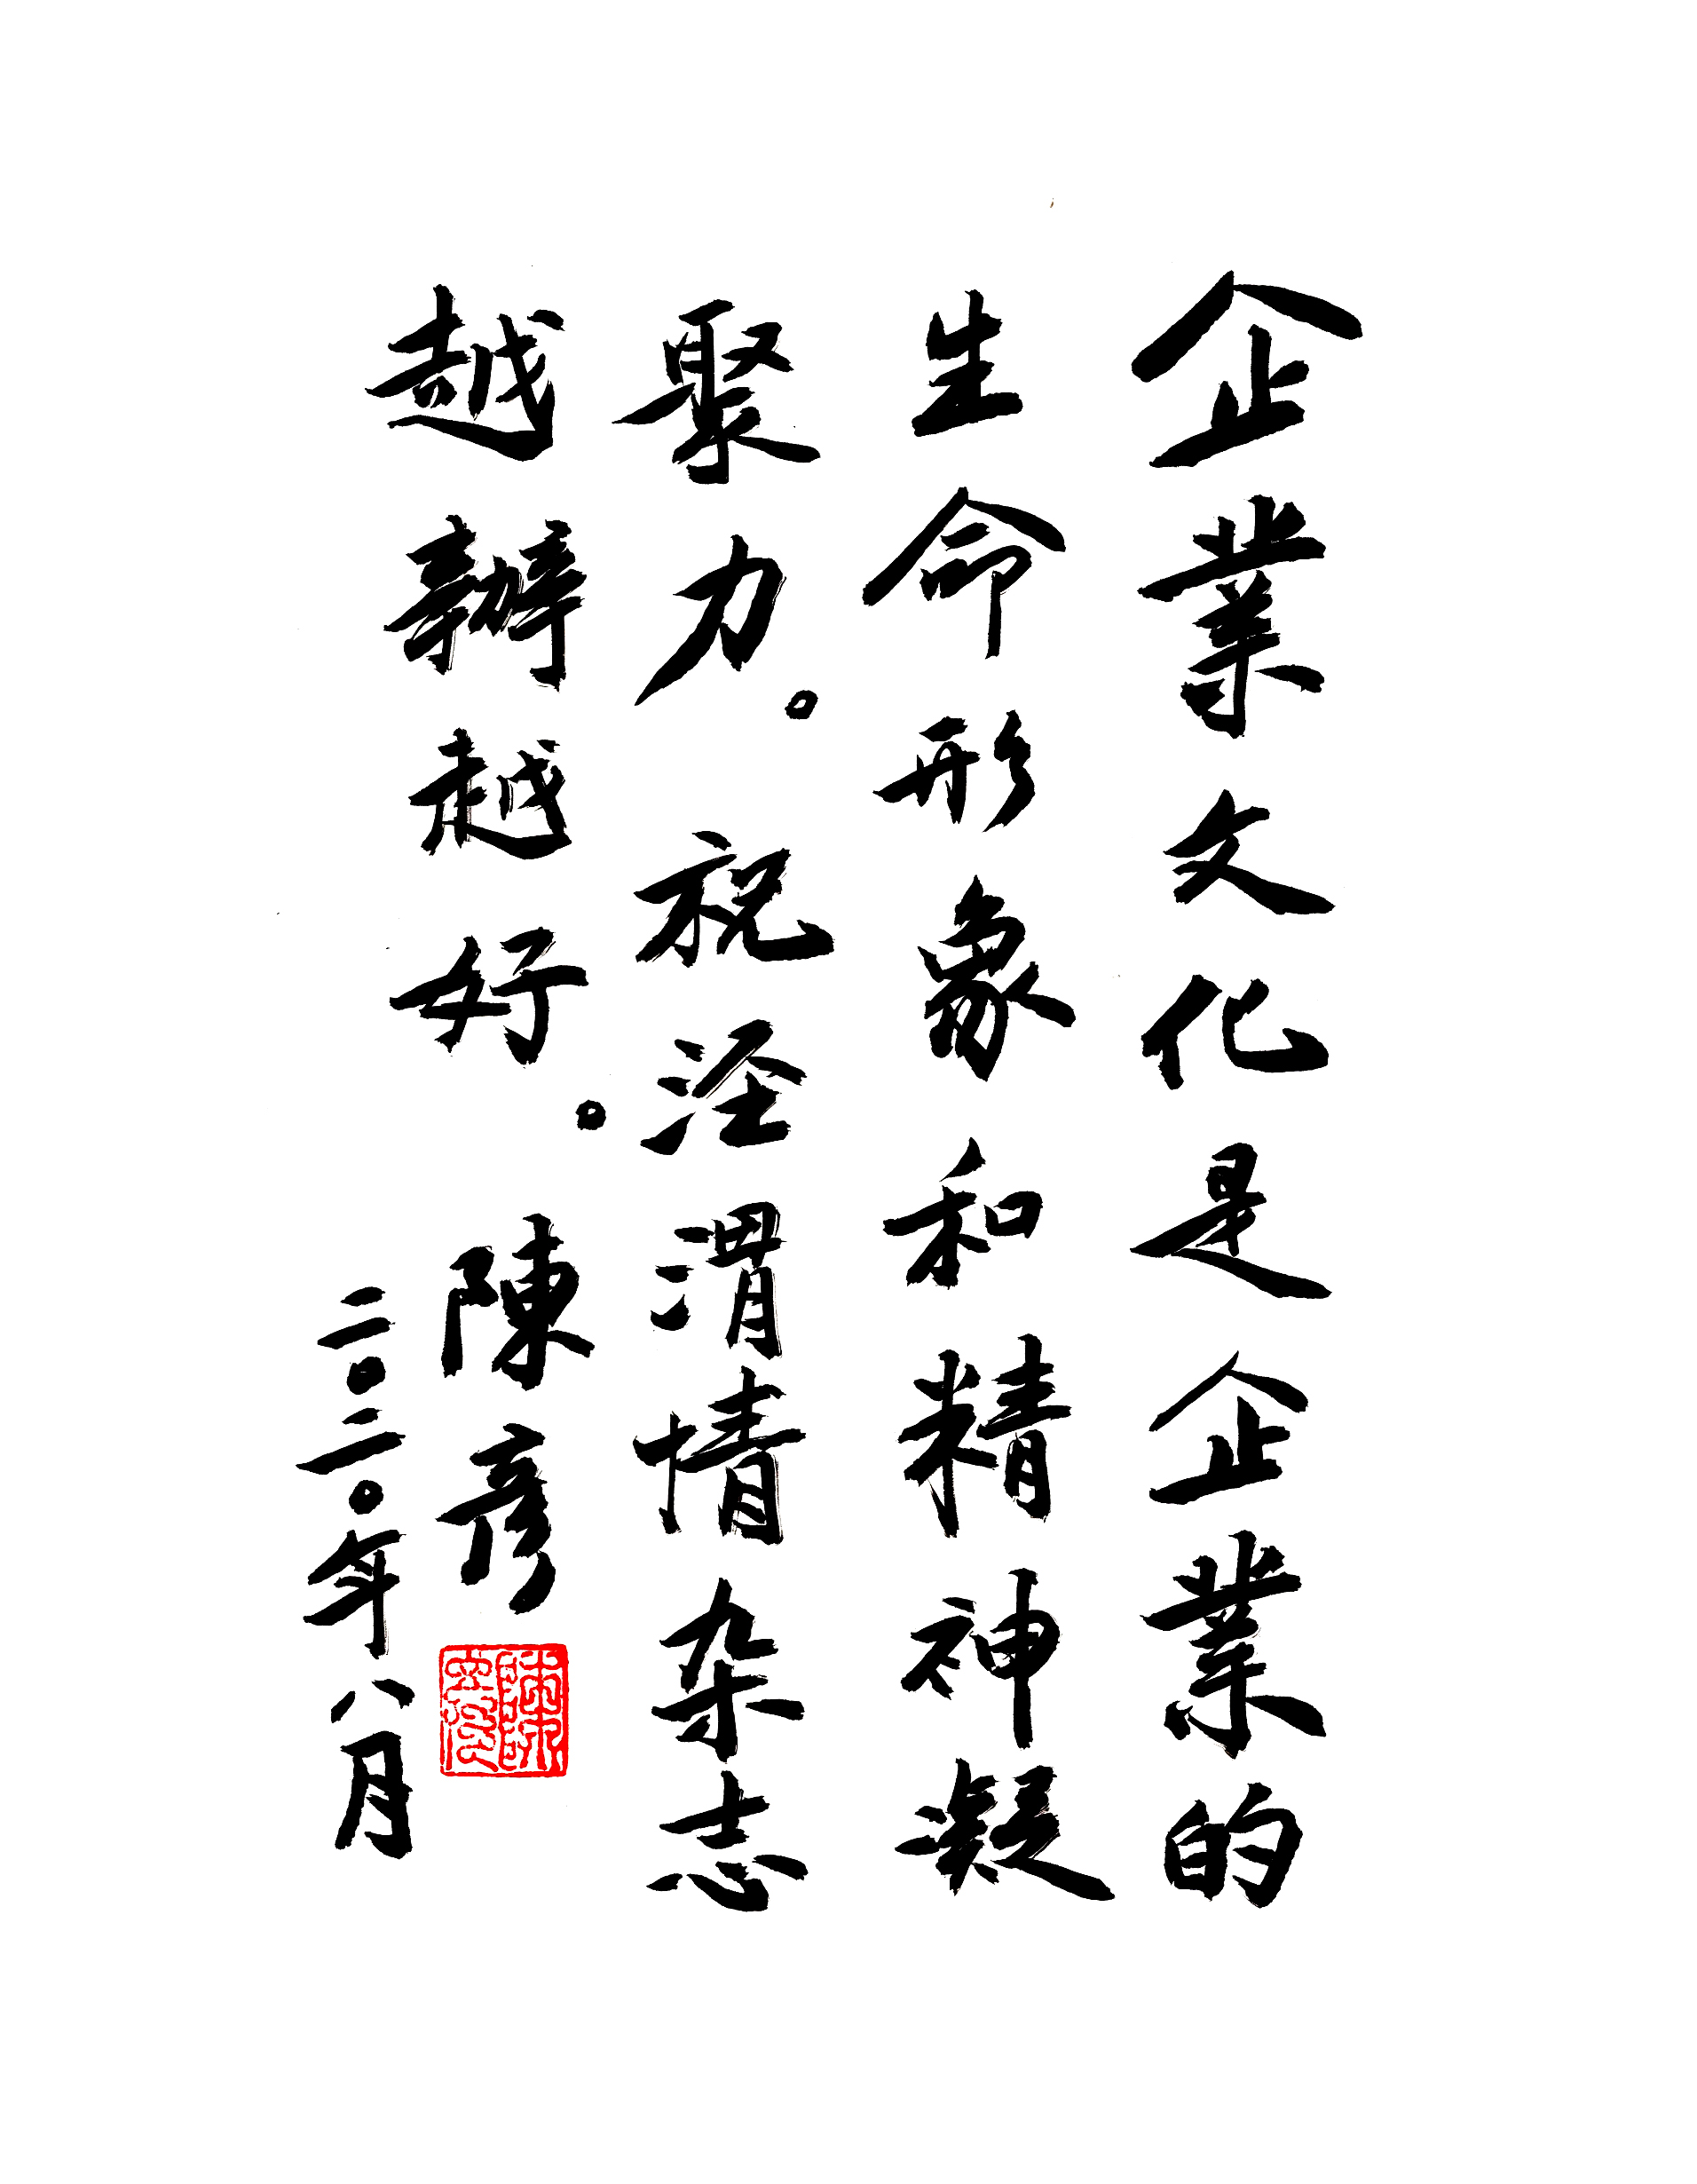 企業文化是企業的
生命形象和精神凝
聚力。祝泾渭情杂志
越辦越好。陳彦
二〇二〇年八月